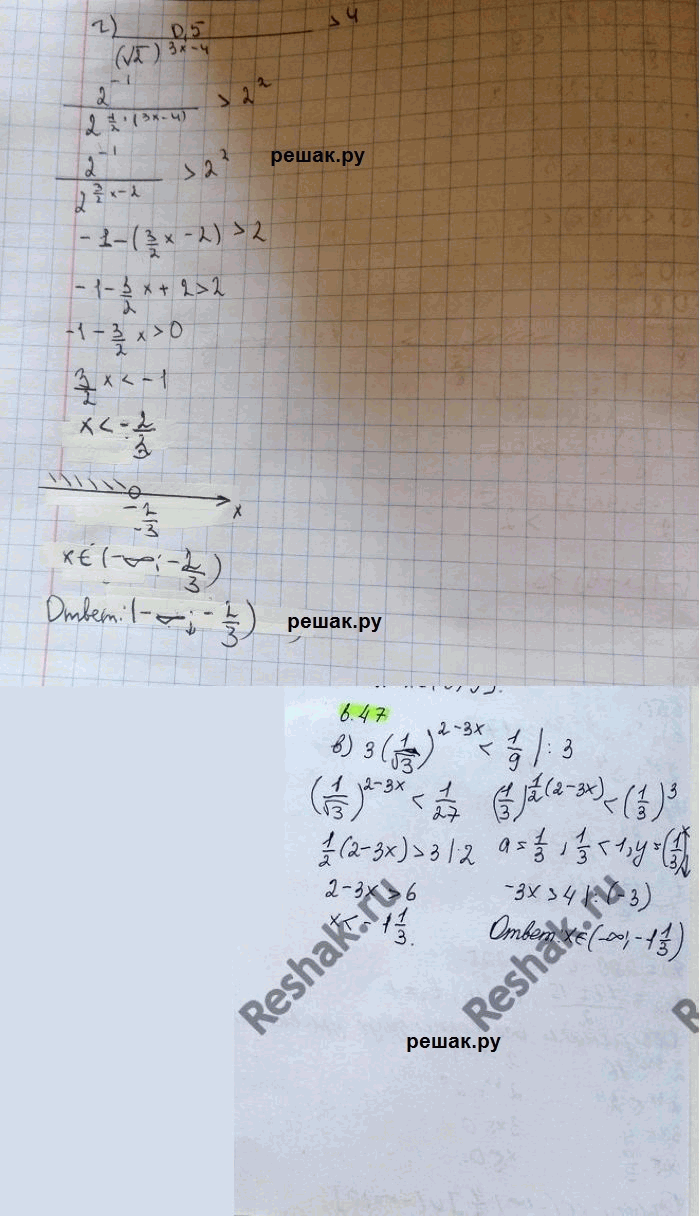 г) 0,5 / (√2)^(3x-4) > 4
2^(-1) / 2^(1/2·(3x-4)) > 2^2
решак.ру
2^(-1) / 2^(3/2 x-2) > 2^2
-1-(3/2 x-2) > 2
-1-3/2 x+2>2
-1-3/2 x>0
3/2 x < -1
x < -2/3
-2/-3 x
x∈(-∞; -2/3)
Ответ: (-∞; -2/3)
решак.ру
6.47
в) 3(1/√3)^(2-3x) < 1/9 |:3
(1/√3)^(2-3x) < 1/27 (1/3)^(1/2(2-3x)) < (1/3)^3
1/2(2-3x)>3|·2 a=1/3, 1/3<1, y=(1/3)^x↓
2-3x>6 -3x>4|:(-3)
x<-1 1/3. Ответ: x∈(-∞; -1 1/3)
Reshak.ru
Reshak.ru
решак.ру